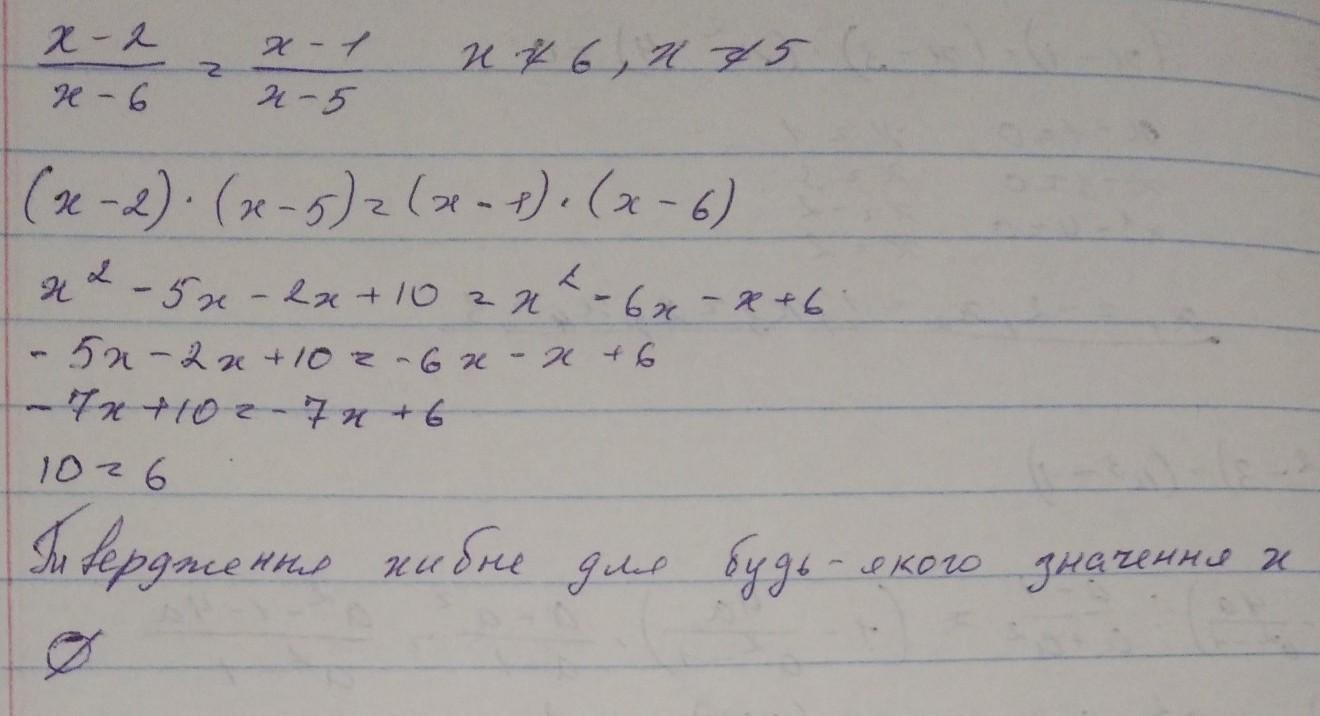 (x - 2)/(x - 6) = (x - 1)/(x - 5) x ≠ 6, x ≠ 5
(x - 2) · (x - 5) = (x - 1) · (x - 6)
x² - 5x - 2x + 10 = x² - 6x - x + 6
- 5x - 2x + 10 = - 6x - x + 6
- 7x + 10 = - 7x + 6
10 = 6
Твердження хибне для будь-якого значення x
∅